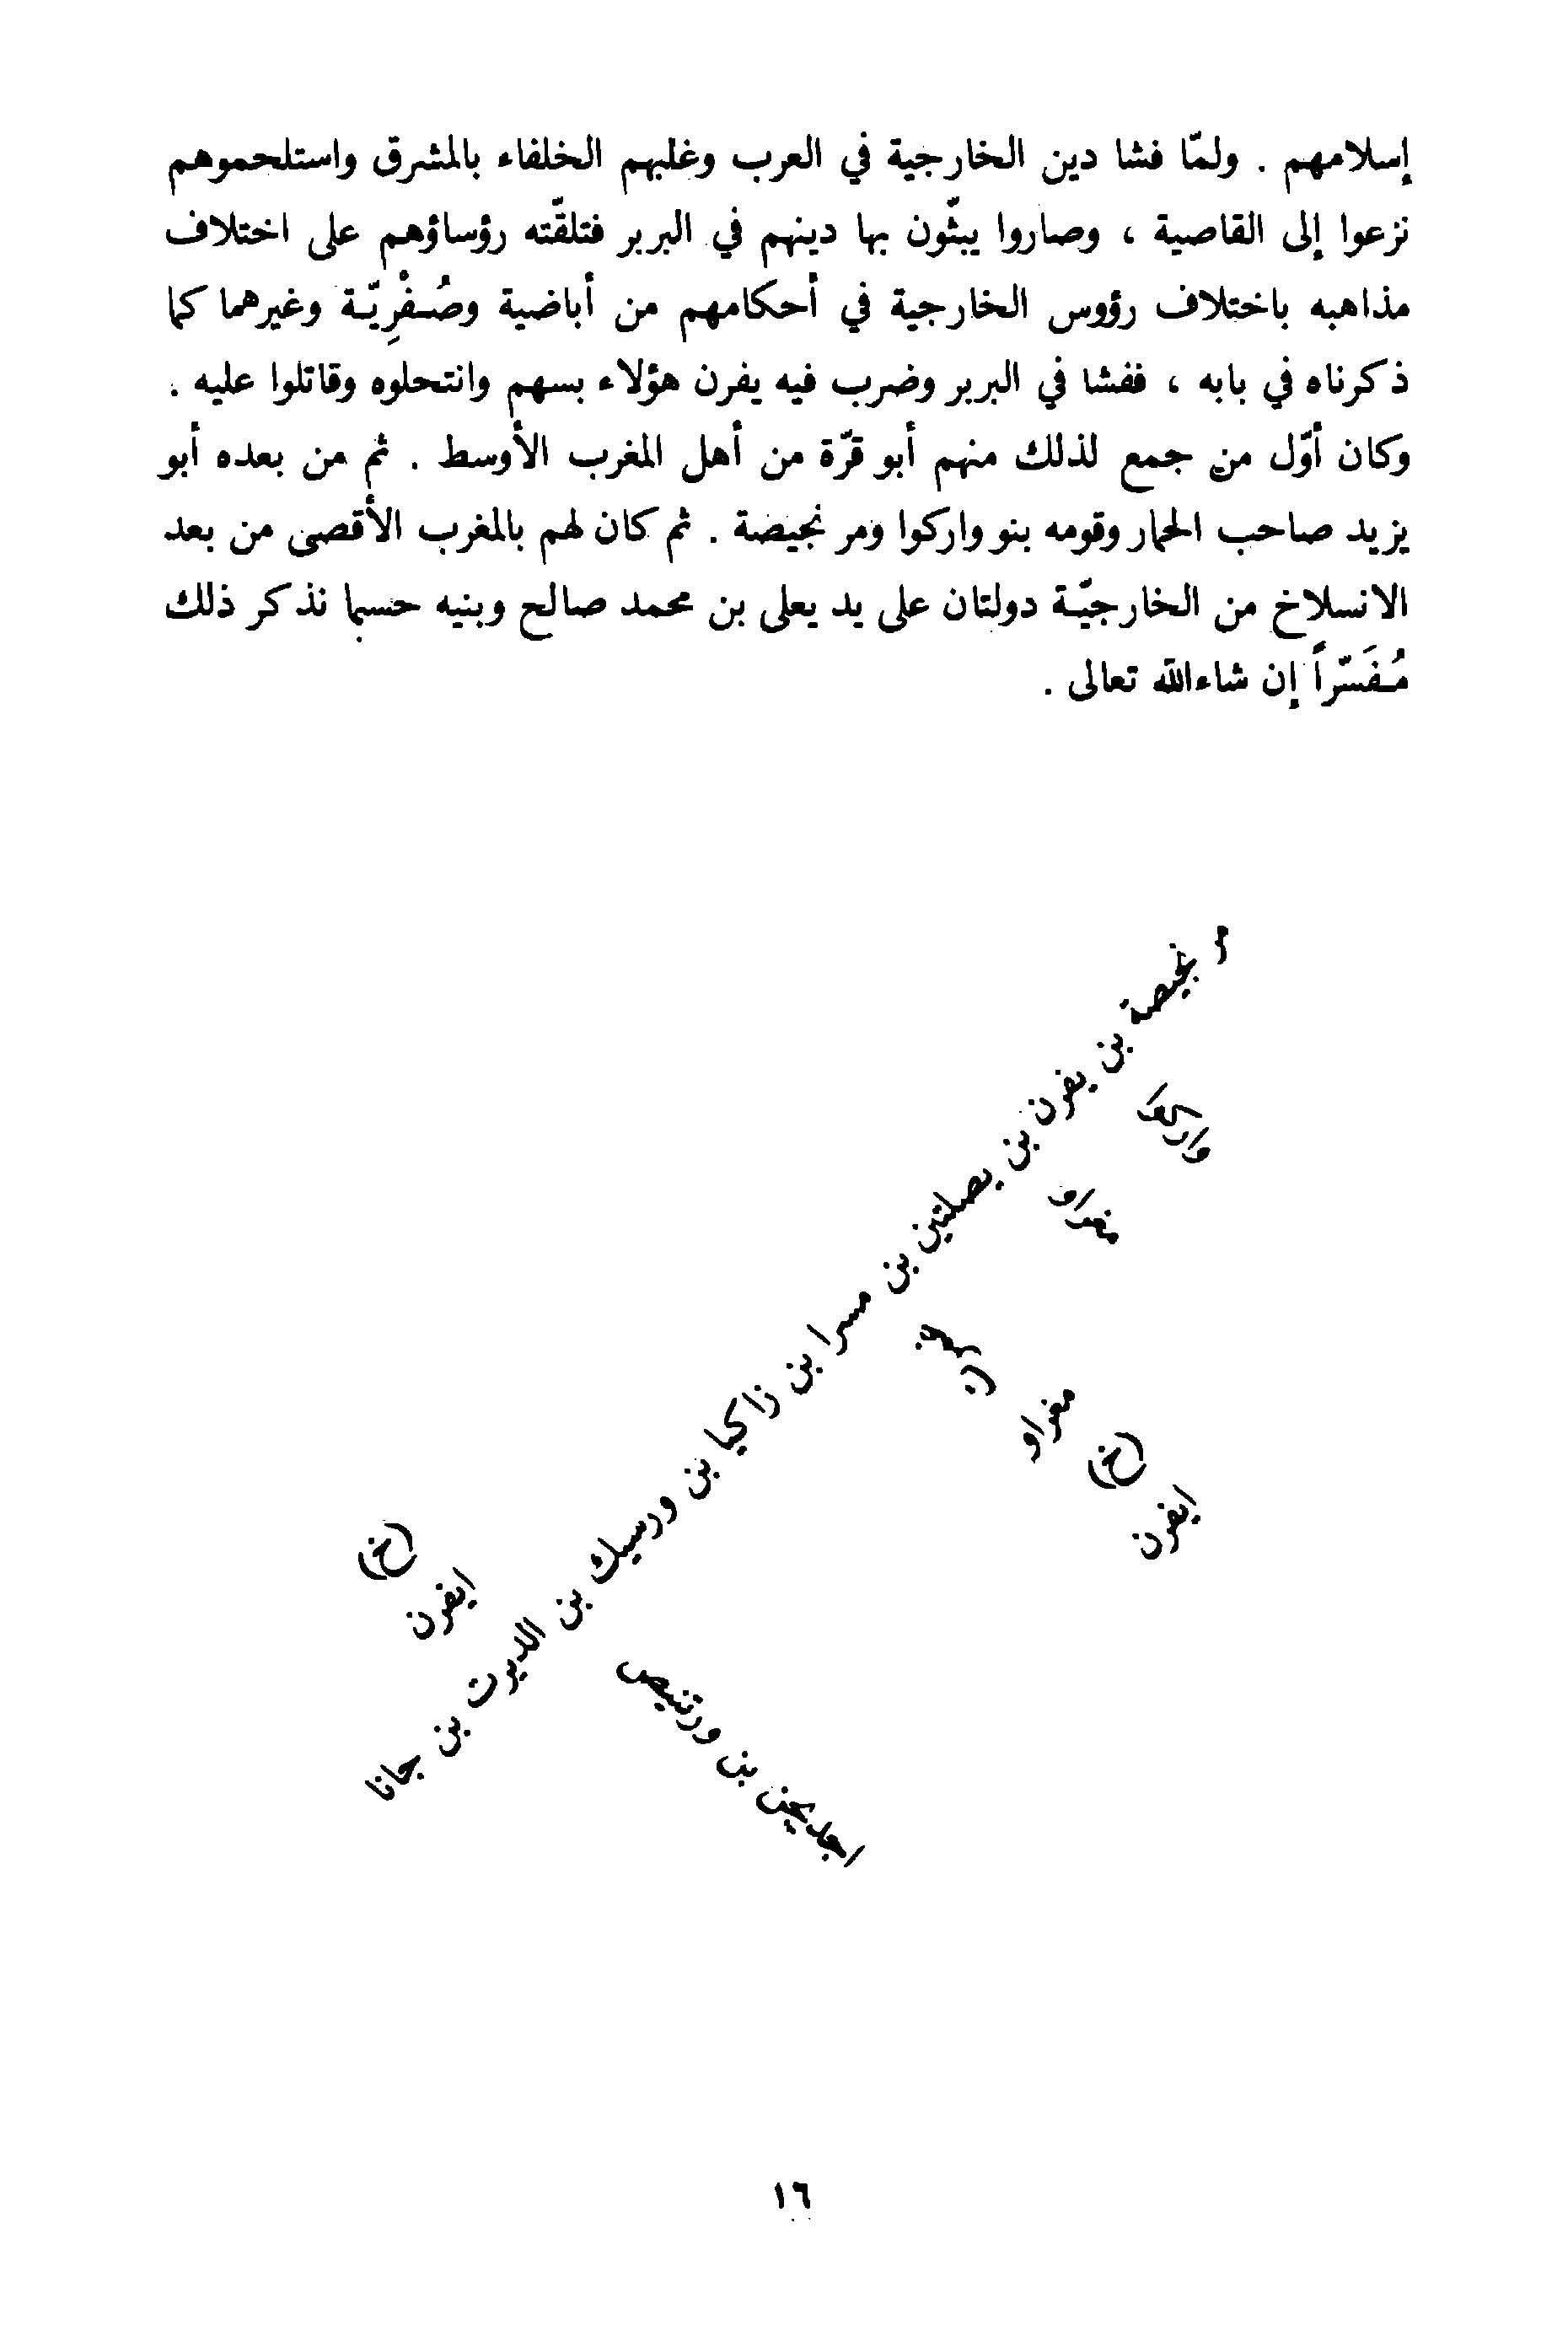 إسلامهم . ولمّا فشا دين الخارجية في العرب وغلبهم الخلفاء بالمشرق واستلحموهم
نزعوا إلى القاصية ، وصاروا يبثّون بها دينهم في البربر فتلقّته رؤساؤهم على اختلاف
مذاهبه باختلاف رؤوس الخارجية في أحكامهم من أباضية وصُفْرِيّة وغيرهما كما
ذكرناه في بابه ، ففشا في البربر وضرب فيه يفرن هؤلاء بسهم وانتحلوه وقاتلوا عليه .
وكان أوّل من جمع لذلك منهم أبو قرّة من أهل المغرب الأوسط . ثم من بعده أبو
يزيد صاحب الحمار وقومه بنو واركوا ومر نجيصة . ثم كان لهم بالمغرب الأقصى من بعد
الانسلاخ من الخارجيّة دولتان على يد يعلى بن محمد صالح وبنيه حسبما نذكر ذلك
مُفَسّراً إن شاءالله تعالى .
مر نجيصة بن يفرن بن يصلتين بن مسرا بن زاكيا بن ورسيك بن الديرت بن جانا
واركوا
مغراو
مغراو
(خ)
ايفرن
(خ)
ايفرن
اجديجن بن ورتنيص
١٦